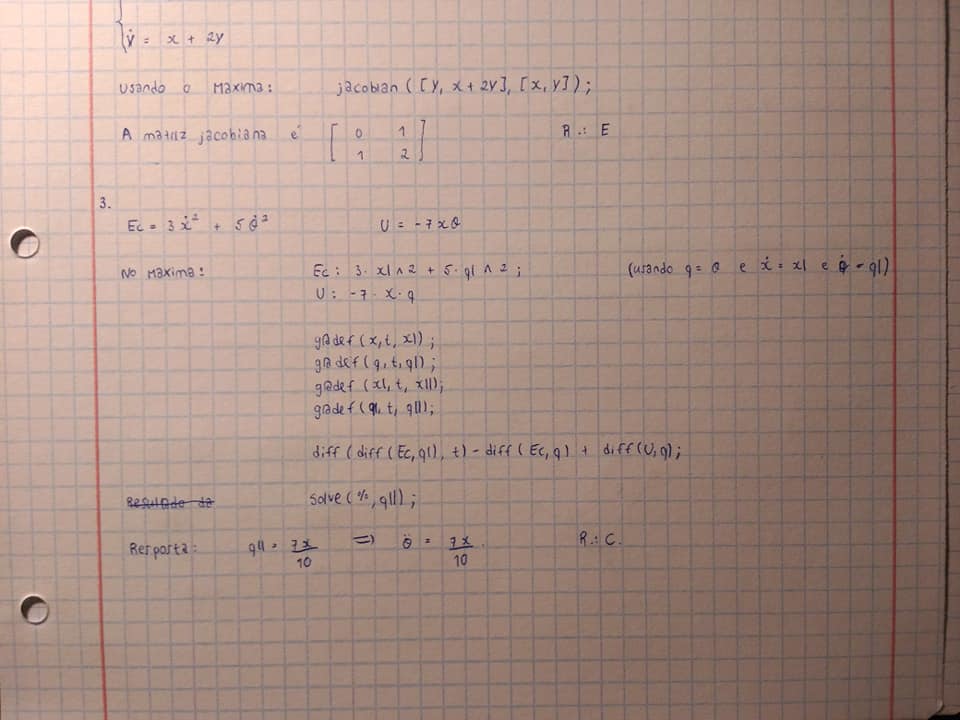 ẏ = x + 2y
usando o Maxima: jacobian ( [y, x + 2y], [x, y] );
A matriz jacobiana é [ 0 1 R.: E
1 2 ]
3.
Ec = 3ẋ² + 5θ̇² U = -7xθ
No Maxima: Ec : 3 · x1 ^ 2 + 5 · q1 ^ 2 ; (usando q = θ e ẋ = x1 e θ̇ = q1)
U : -7 · x · q
gradef (x, t, x1) ;
gradef (q, t, q1) ;
gradef (x1, t, x11);
gradef (q1, t, q11);
diff ( diff ( Ec, q1), t) - diff ( Ec, q) + diff (U, q) ;
Resultado da solve ( %, q11) ;
Resposta: q11 = 7x/10 => θ̈ = 7x/10. R.: C.